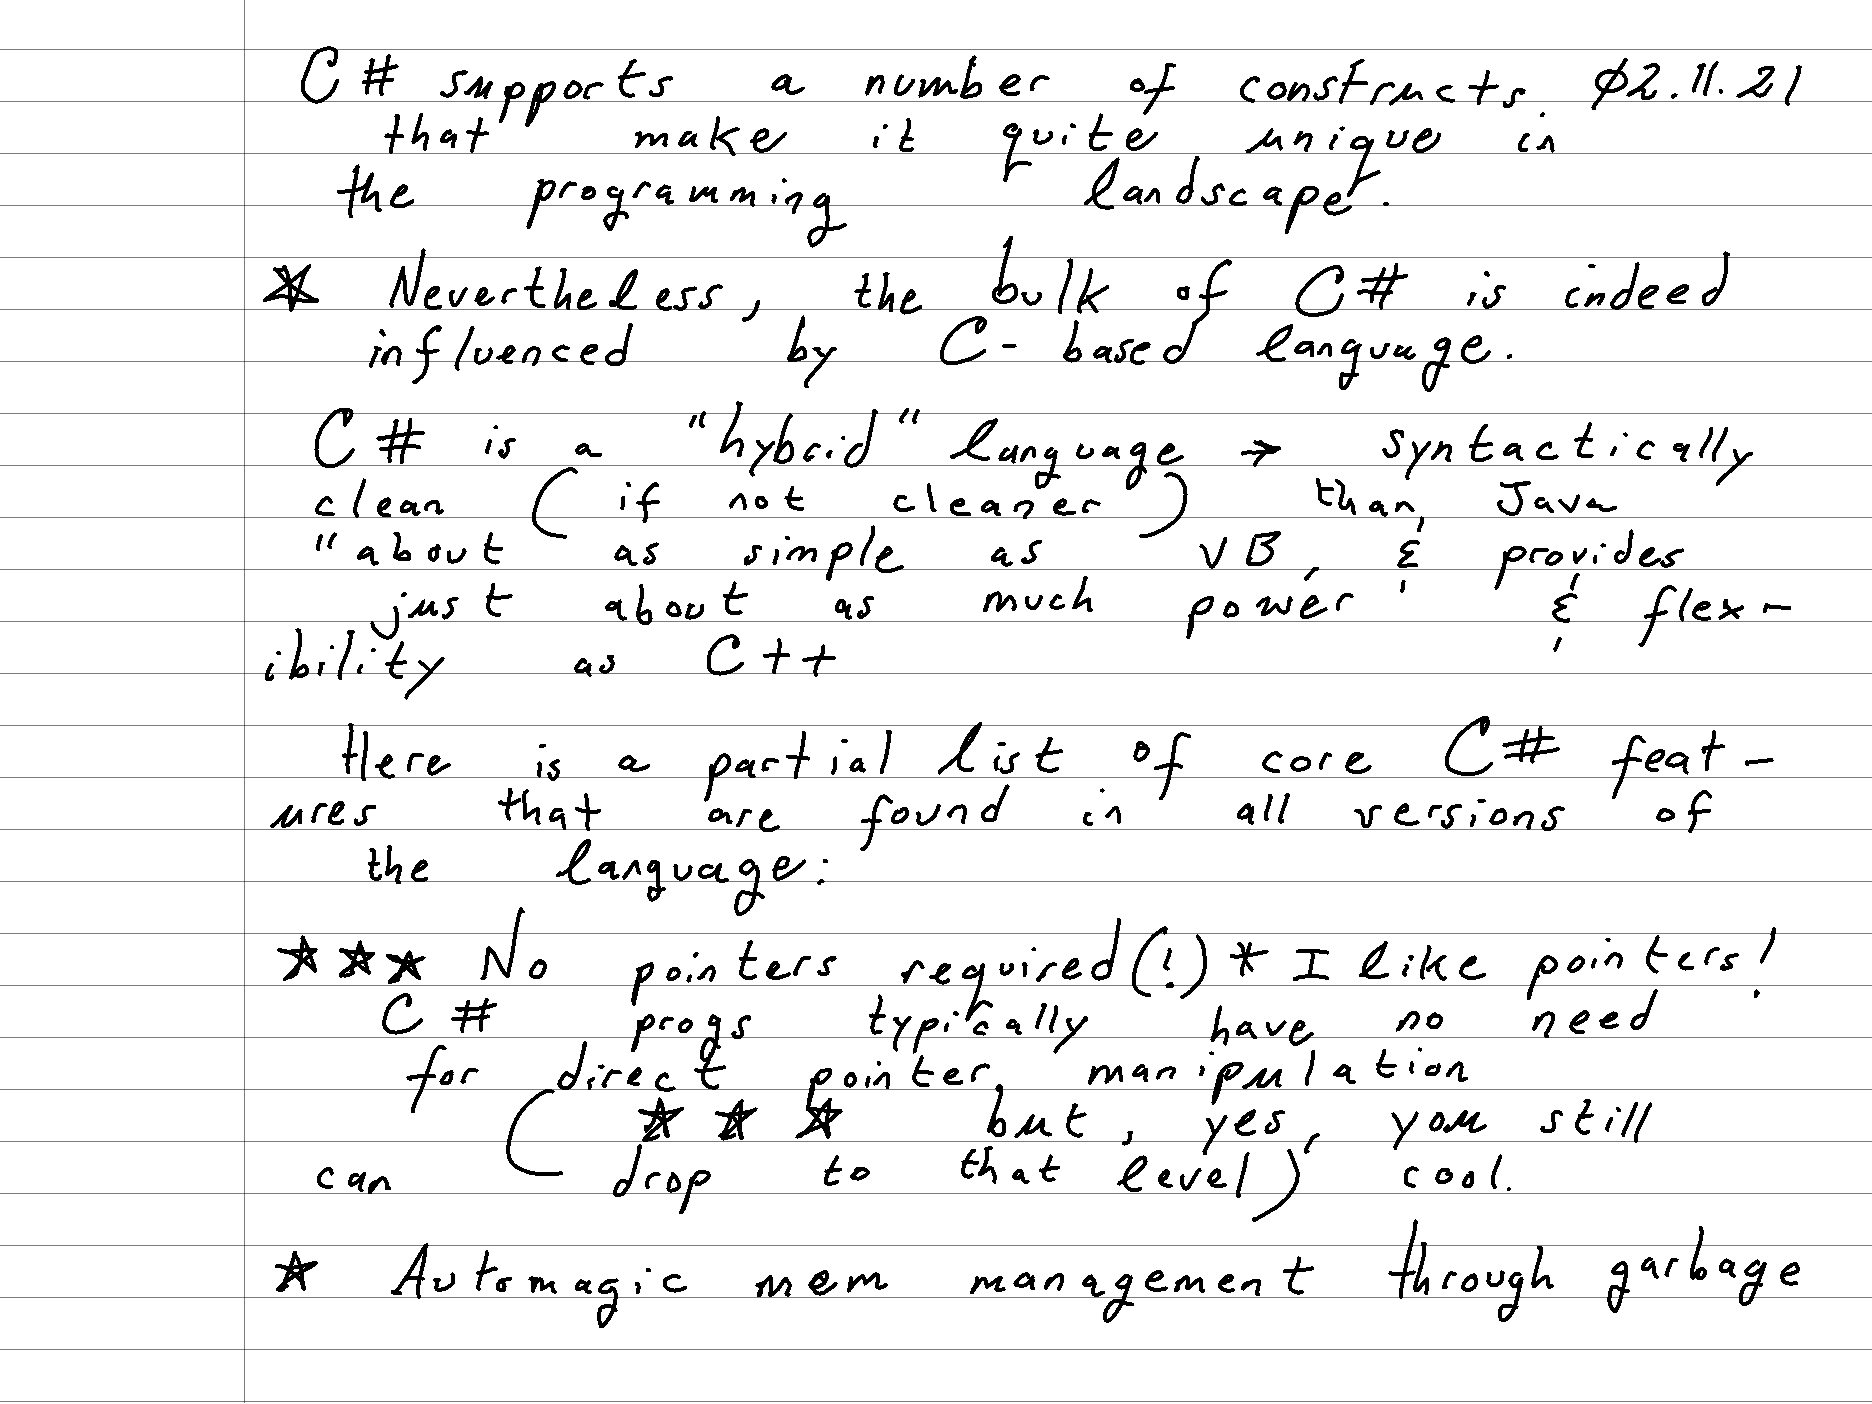 C# supports a number of constructs 02.11.21
that make it quite unique in
the programming landscape.
☆ Nevertheless, the bulk of C# is indeed
influenced by C-based language.
C# is a "hybrid" language → syntactically
clean (if not cleaner) than Java
"about as simple as VB, & provides
just about as much power & flex-
ibility as C++
Here is a partial list of core C# feat-
ures that are found in all versions of
the language:
☆☆☆ No pointers required(!) * I like pointers!
C# progs typically have no need
for direct pointer manipulation
( ☆ ☆ ☆ but, yes, you still
can drop to that level) cool.
☆ Automagic mem management through garbage